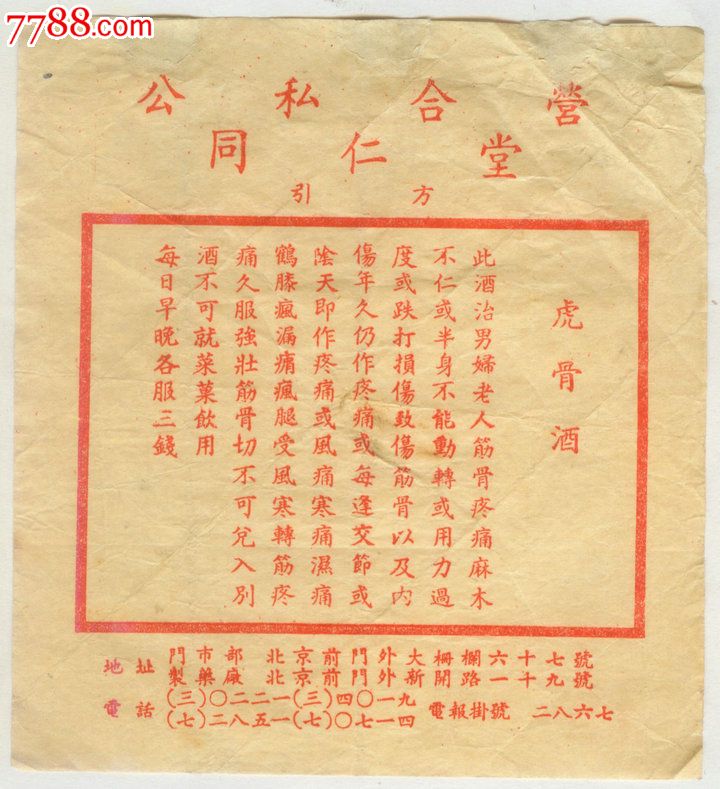 7788.com
公私合營
同仁堂
方引
虎骨酒
此酒治男婦老人筋骨疼痛麻木
不仁或半身不能動轉或用力過
度或跌打損傷致傷筋骨以及内
傷年久仍作疼痛或每逢交節或
陰天即作疼痛或風痛寒痛濕痛
鶴膝瘋漏肩瘋腿受風寒轉筋疼
痛久服強壯筋骨切不可兌入別
酒不可就菜菓飲用
每日早晚各服三錢
地址 門市部 北京前門外大柵欄六十七號
製藥廠 北京前門外新開路一十九號
電話 (三)〇二二一(三)四〇一九
(七)二八五一(七)〇七一四 電報掛號 二八六七